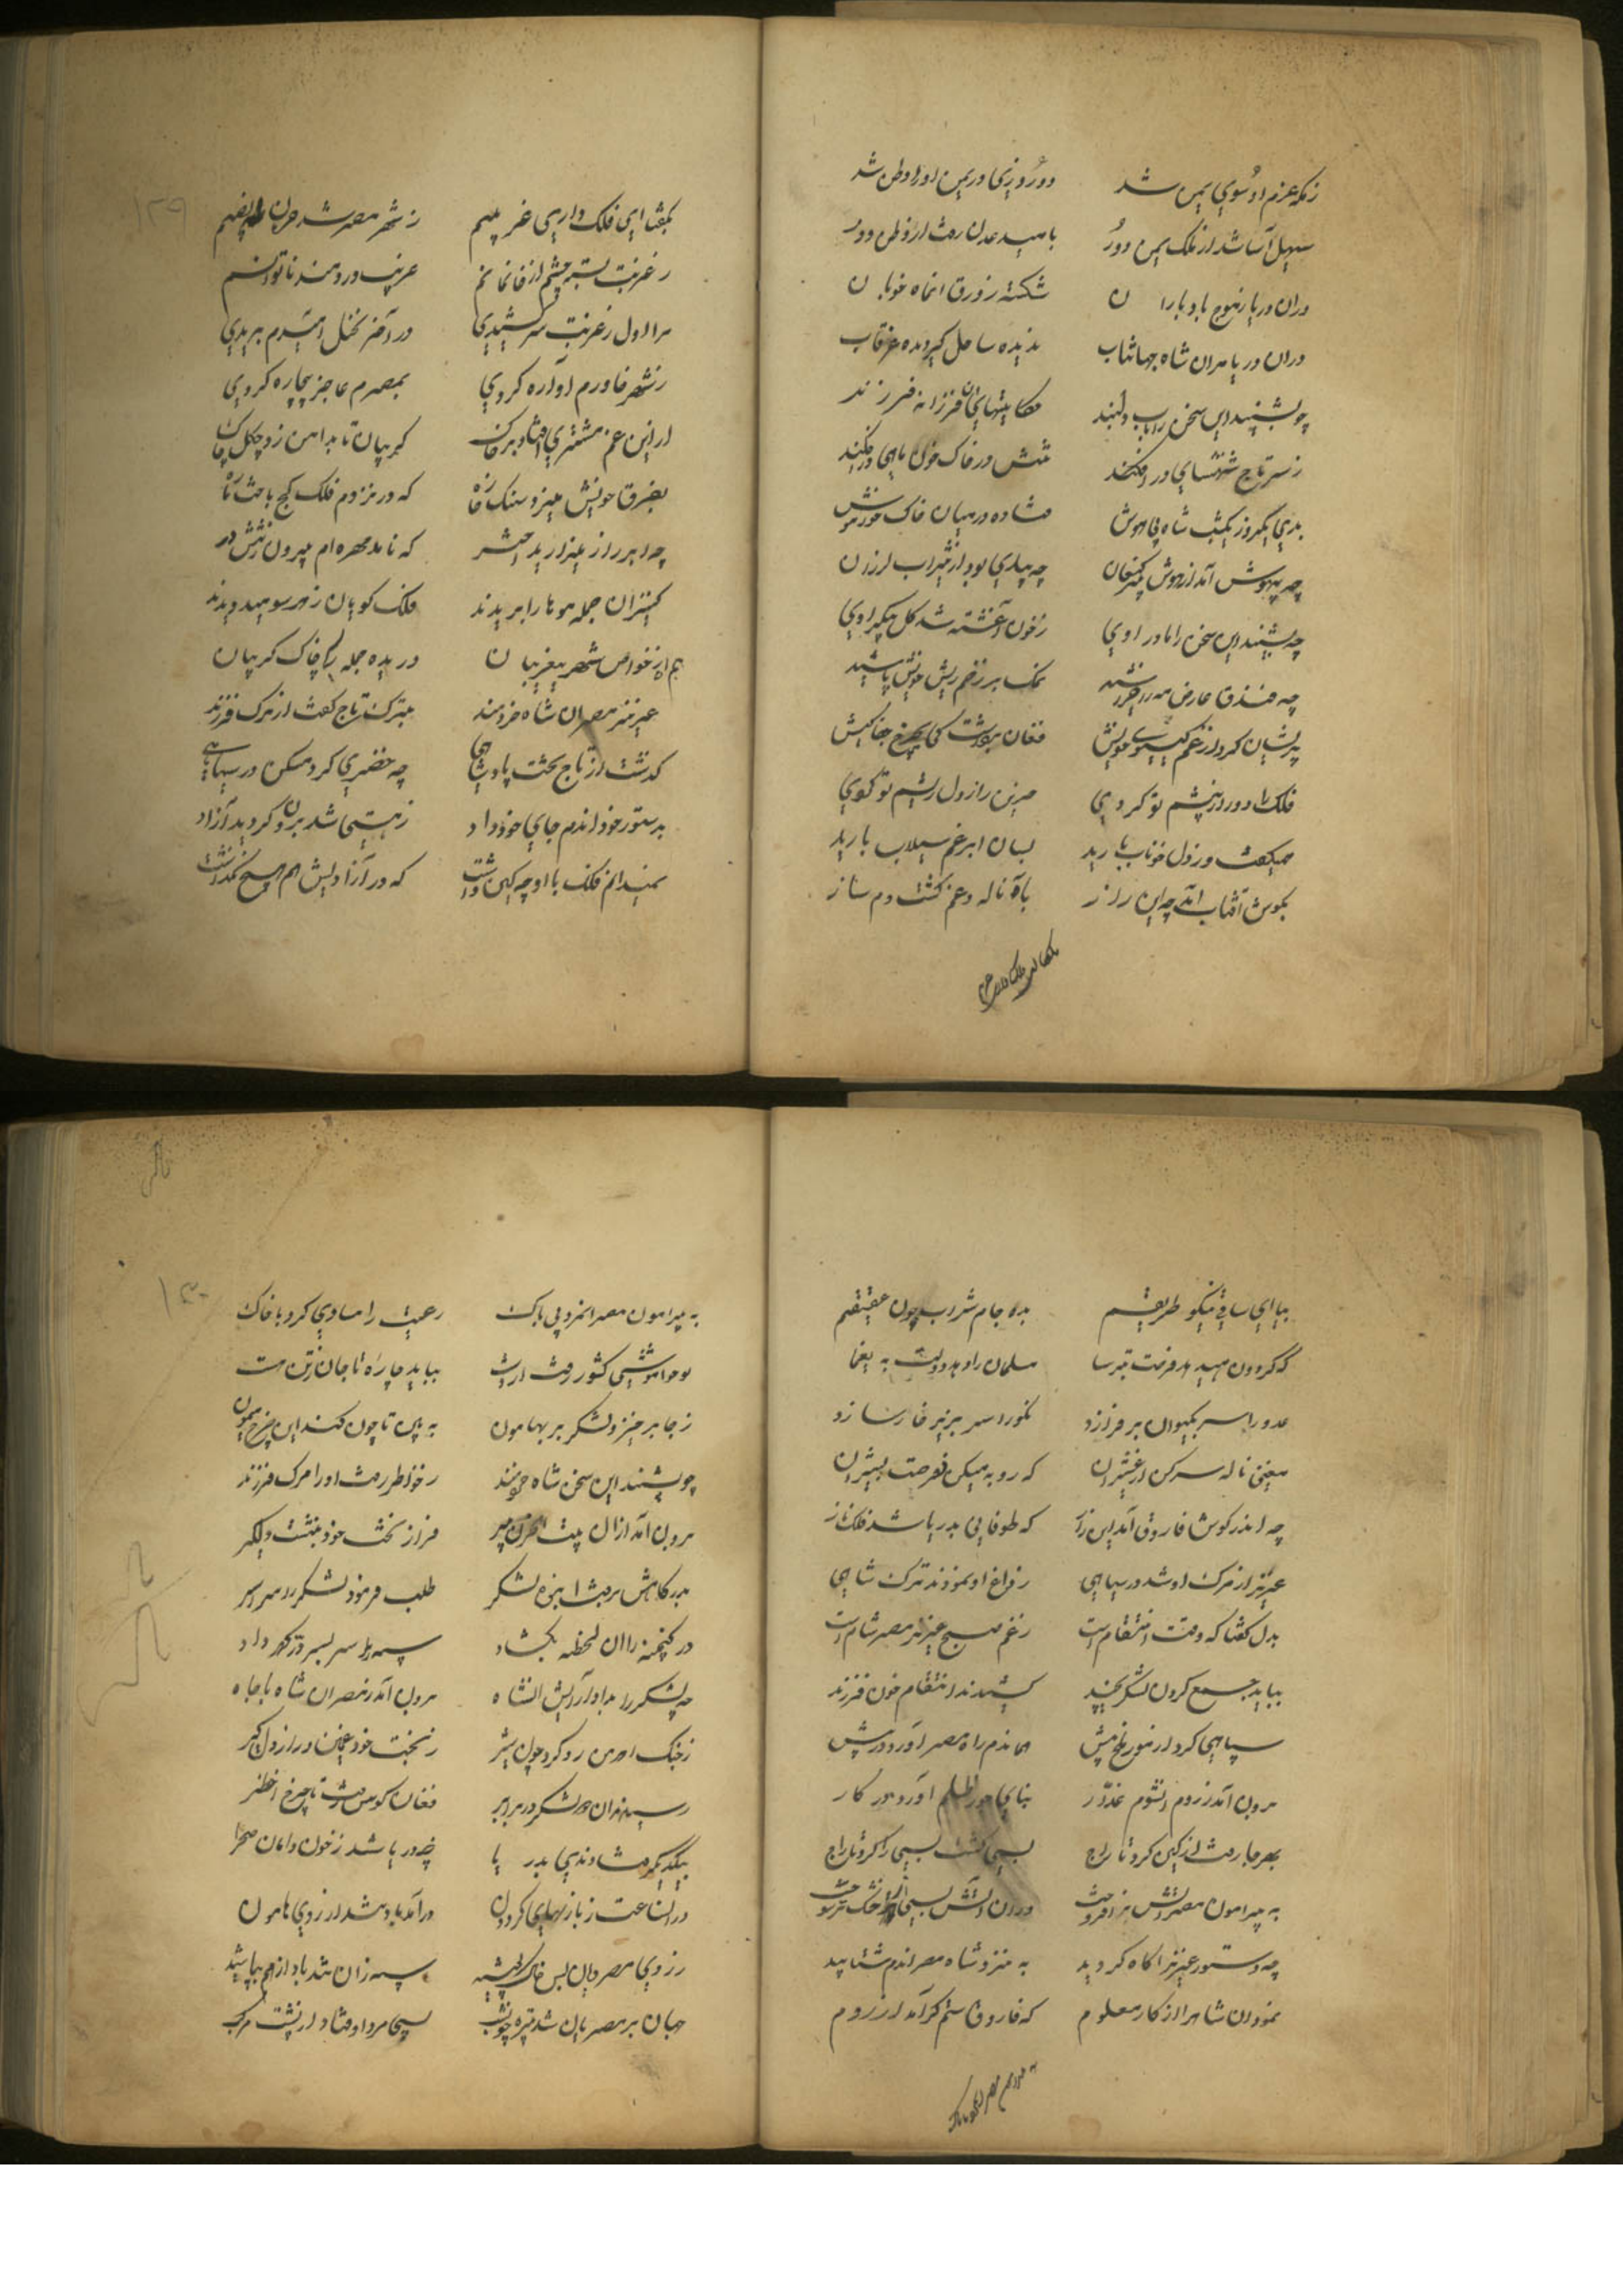 ز مکه عزم او سوی یمن شد دو روزی در یمن او را وطن شد
سهیل آسا شد از ملک یمن دور بامید عدن رفت از وطن دور
دران دریا ز موج باد و باران شکسته زورق آن ماه خوبان
دران دریا مران شاه جهانتاب ندیده ساحل گردیده غرقاب
چو بشنید این سخن را باب دلبند حکایتهای آن فرزانه فرزند
ز سر تاج شهنشاهی در افکند تنش در خاک خون ماهی در افکند
بدی یکروز یکشب شاه بی هوش فتاده در میان خاک خون
چه بیهوش آمد از هوش پیر کنعان چه بیماری بود از تب لرزان
چه بشنید این سخن را مادر اوی ز خون آغشته شد گل پیکر اوی
چه فندق عارض مه را نمک بر زخم ریش خویش پاشید
پریشان کرد از غم گیسوی خویش فغان برداشت کی چرخ جفا کیش
فلک را دور از پیشم تو کردی حزین راز دل ریشم تو کردی
همیگفت و ز دل خوناب بارید بسان ابر غم سیلاب بارید
بگوش آفتاب آمد چه این راز باه ناله و غم گشت دمساز
بگفتا ای فلک
بگفتا ای فلک داری غم بیم ز شهر مصر شد
ز غربت بسته چشم از خانمانم غریب دردمند ناتوانم
مرا اول ز غربت سر کشیدی در آخر نخل امیدم بریدی
ز شهر خاورم آواره کردی بمصرم عاجز بیچاره کردی
ازین غم مشتری افتاد بر خاک گریبان تا بدامن زد چاک
بفرق خویش میزد سنگ خاره که در نزدم فلک کج باخت
چه ابر راز میزارید که نامد مهره ام بیرون ز ششدر
کنیزان جمله موها را بریدند فلک گویان ز هر سو میدویدند
هم از خواص شهر غریبان دریده جمله را چاک گریبان
عزیز مصر آن شاه خردمند بترک تاج گفت از مرگ فرزند
گذشت از تاج تخت پادشاهی چه خضری کرد مسکن در سیاهی
بدستور خود آندم جای خود داد ز هستی شد برون گردید آزاد
نمیدانم فلک با او چه کین داشت که در آزادیش هم هیچ نگذاشت
۱۲۹
بیا ای ساقی نیکو طریقم بده جام شراب چون عقیقم
که گردون میدهد فرصت بترسا مسلمان را دهد دولت به یغما
عدو را سر بکیوان بر فرازد نگون سر بر زیر خار سازد
مغنی ناله سر کن از که روبه میکن فرصت بشیران
چه اندر گوش فاروق آمد این راز که طوفانی بدریا شد فلک ناز
عزیز از مرگ او شد در سیاهی ز داغ او نمودند ترک شاهی
بدل گفتا که وقت انتقام است ز غم صبح عزیز مصر شام است
بباید جمع کردن لشکر چند کشیدند انتقام خون فرزند
سپاهی کرد از مور ملخ بیش همان دم راه مصر آورد در پیش
برون آمد ز روم آن شوم غدار بنای جور ظلم آورد در کار
بهر جا رفت از کین کرد تاراج بسی کشت بسی را کرد تاراج
به پیرامون مصر آتش بر افروخت دران آتش بسی خشک تر سوخت
چه دستور عزیز آگاه گردید به نزد شاه مصر آندم شتابید
نمود آن شاه را از کار معلوم که فاروق ستمگر آمد از روم
به پیرامون مصر
به پیرامون مصر آمد بی باک رعیت را مساوی کرد با خاک
تو خاموشی کشور رفت از دست بباید چاره تا جان در تن هست
ز جا برخیز و لشکر بر بهامون به بین تا چون کند این چرخ
چو بشنید این سخن شاه خردمند ز خاطر رفت او را مرگ فرزند
برون آمد ازان بیت الحزن پیر فراز تخت خود بنشست دلگیر
بدرگاهش برفت انبوه لشکر طلب فرمود لشکر را سراسر
در گنجینه را آن لحظه بگشاد سپه را سر بسر در گهر داد
چه لشکر را بداد آرایش آن شاه برون آمد ز مصر آن شاه با جاه
ز جنگ اهرمن رو کرد چون شیر ز تخت خود
رسیدند آن دو لشکر در برابر فغان کوس رفت تا چرخ اخضر
بیکدیگر فتادندی بدریا چه دریا شد ز خون دامان صحرا
دران ساعت ز بازیهای گردون درآمد باد تند از روی هامون
ز روی مصریان بس خاک پاشید سپه زان تند باد از هم بپاشید
جهان بر مصریان شد تیره چون شب بسی مرد اوفتاد از پشت مرکب
۱۳۰